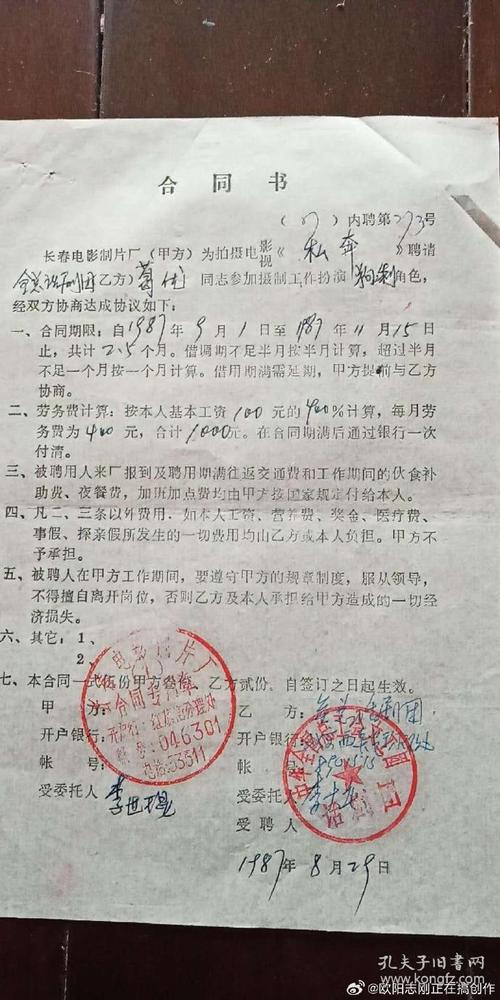 合同书
(87)内聘第273号
长春电影制片厂(甲方)为拍摄电影视《私奔》聘请
全总话剧团(乙方)葛优同志参加摄制工作扮演角色,
经双方协商达成协议如下:
一、合同期限:自1987年9月1日至1987年11月15日
止,共计2.5个月。借调期不足半月按半月计算,超过半月
不足一个月按一个月计算。借用期满需延期,甲方提前与乙方
协商。
二、劳务费计算:按本人基本工资100元的400%计算,每月劳
务费为400元,合计1000元。在合同期满后通过银行一次
付清。
三、被聘用人来厂报到及聘用期满往返交通费和工作期间的伙食补
助费、夜餐费,加班加点费均由甲方按国家规定付给本人。
四、凡二、三条以外费用.如本人工资、营养费、奖金、医疗费、
事假、探亲假所发生的一切费用均由乙方或本人负担。甲方不
予承担。
五、被聘人在甲方工作期间,要遵守甲方的规章制度,服从领导,
不得擅自离开岗位,否则乙方及本人承担给甲方造成的一切经
济损失。
六、其它:1、
2、
七、本合同一式伍份甲方叁份,乙方贰份,自签订之日起生效。
甲方:
乙方:全总话剧团
开户银行:
开户银行:
帐号:
帐号:
受委托人
受委托人
受聘人
1987年8月29日
长春电影制片厂
合同专用章
046301
电话:53311
话剧团
孔夫子旧书网
www.kongfz.com
@欧阳志刚正在搞创作